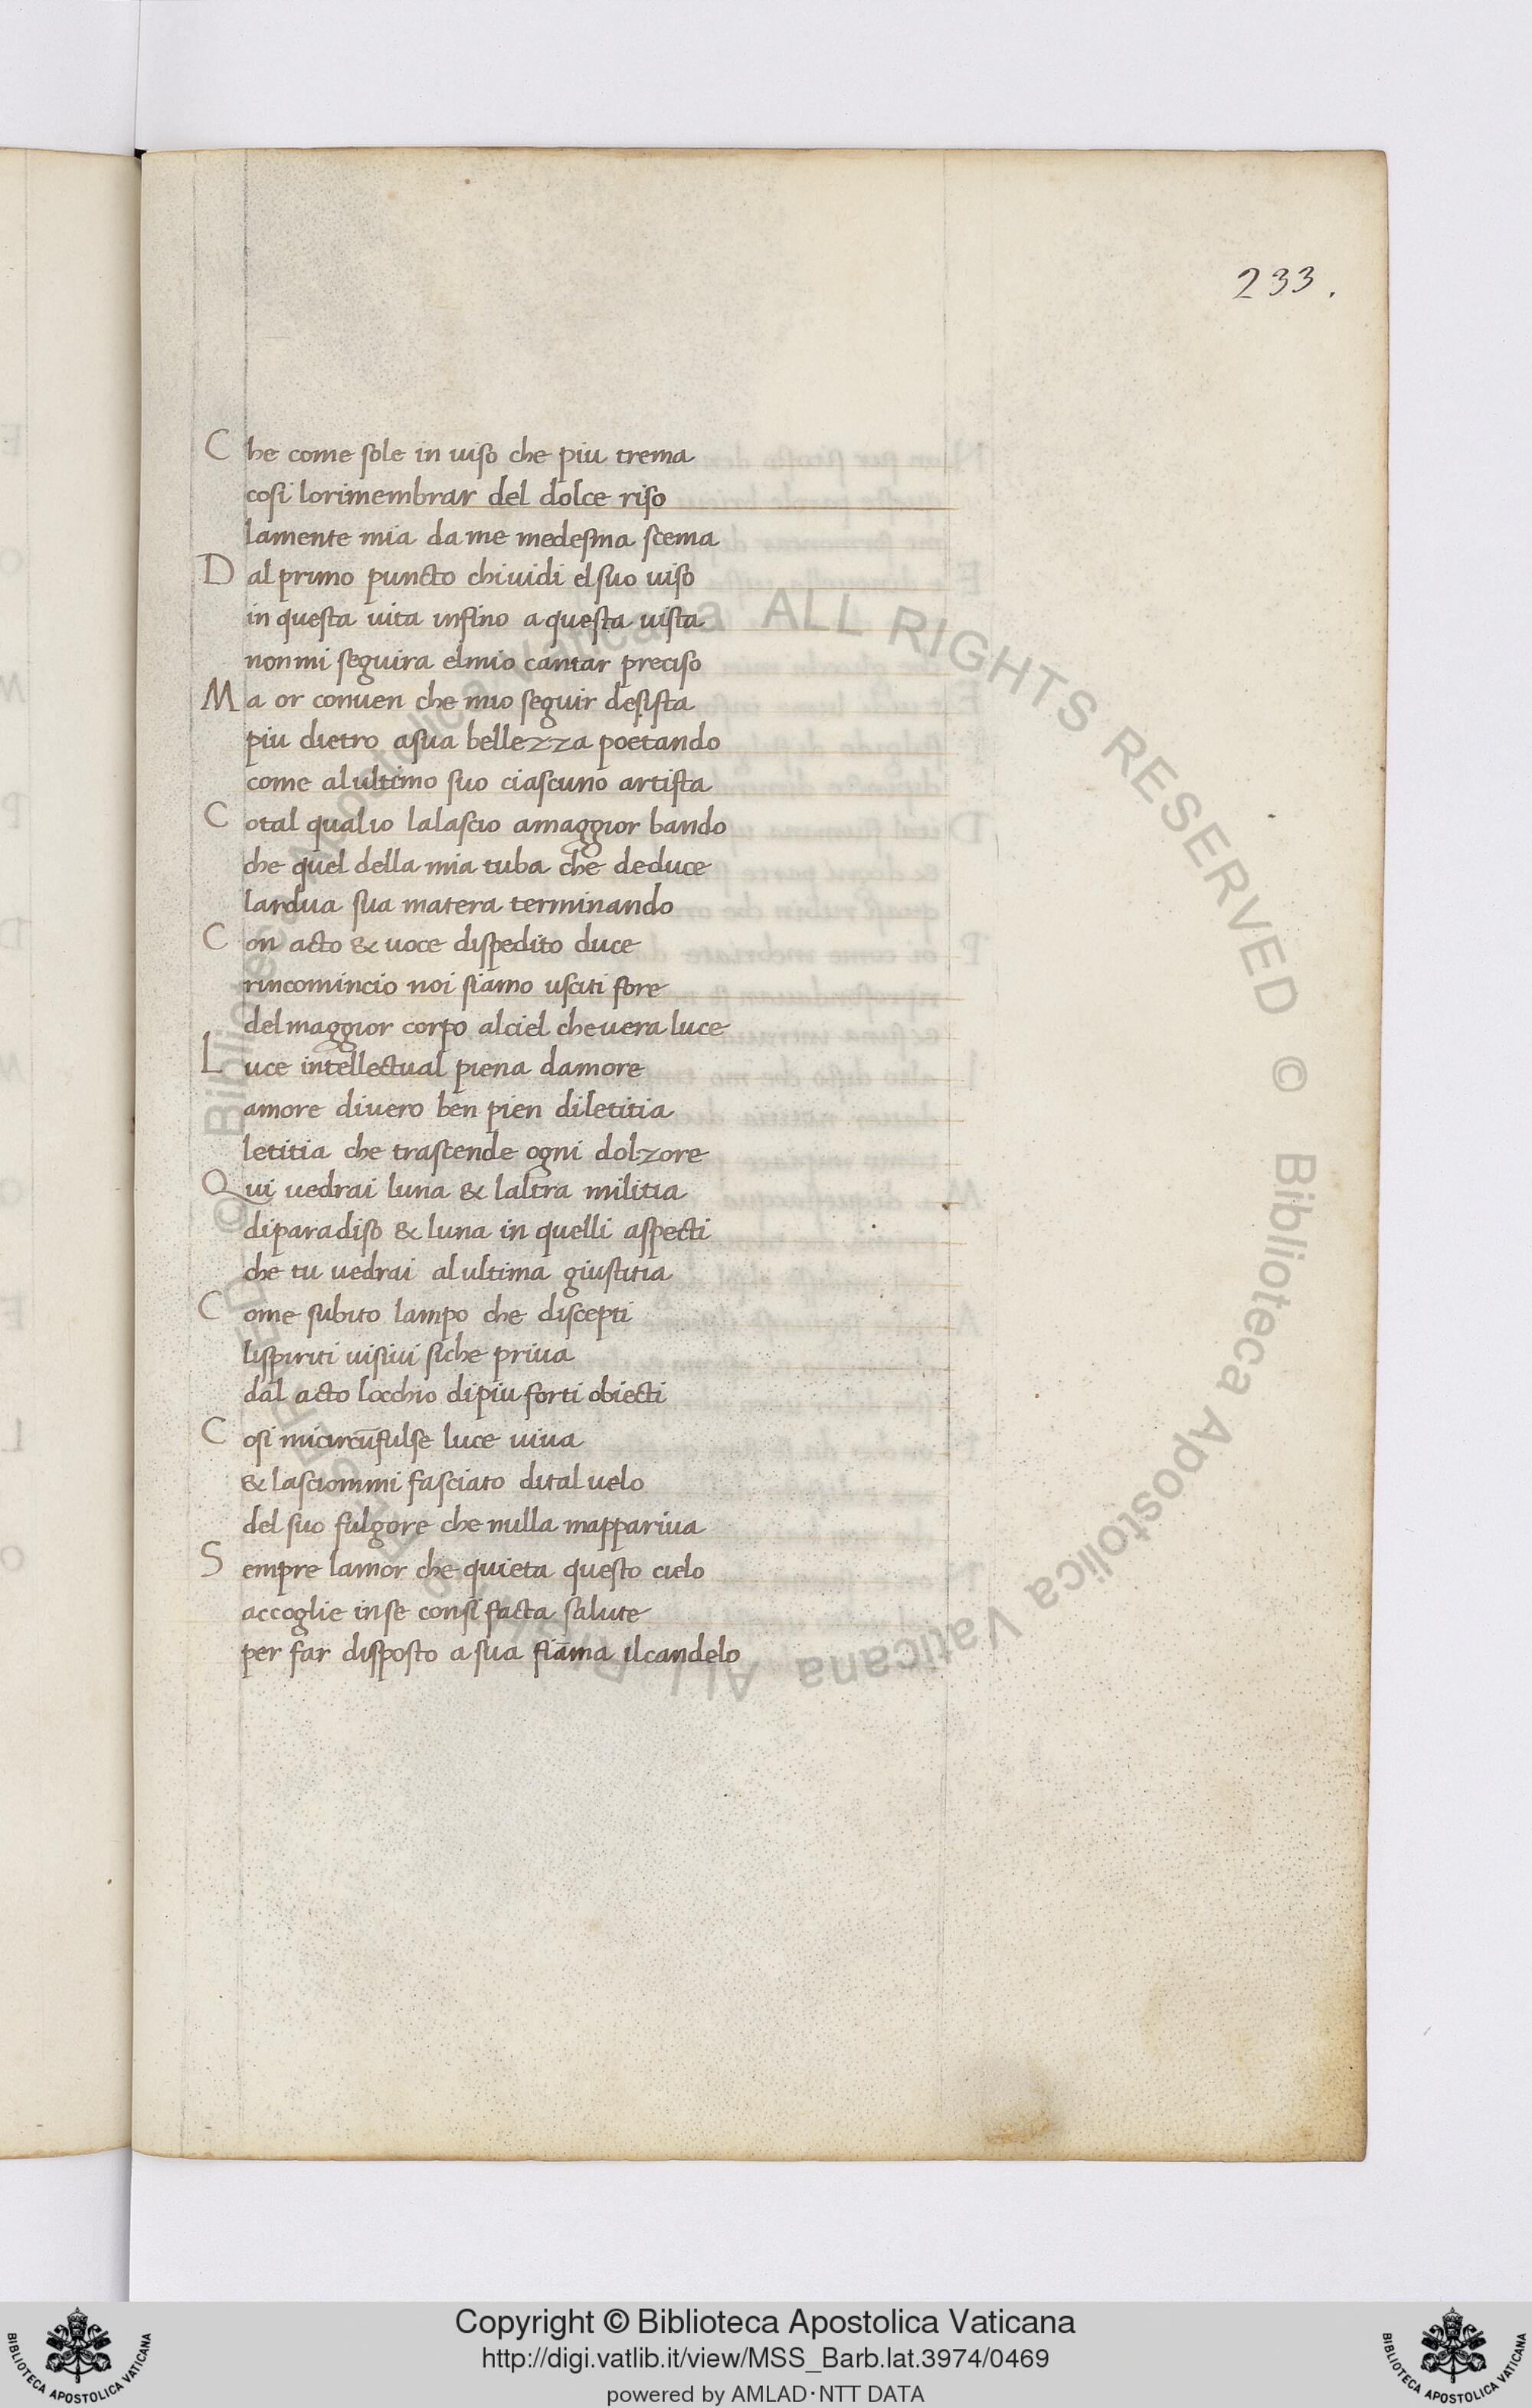 233.
C he come sole in uiso che piu trema
cosi lorimembrar del dolce riso
lamente mia da me medesma scema
D al primo puncto chiuidi elsuo uiso
in questa uita infino aquesta uista
nonmi seguira elmio cantar preciso
M a or conuen che mio seguir desista
piu dietro asua bellezza poetando
come alultimo suo ciascuno artista
C otal qualio lalascio amaggior bando
che quel della mia tuba che deduce
lardua sua matera terminando
C on acto & uoce dispedito duce
rincomincio noi siamo usciti fore
delmaggior corpo alciel cheuera luce
L uce intellectual piena damore
amore diuero ben pien diletitia
letitia che trascende ogni dolzore
Q ui uedrai luna & laltra militia
diparadiso & luna in quelli aspecti
che tu uedrai alultima giustitia
C ome subito lampo che discepti
lispiriti uisiui siche priua
dal acto locchio dipiu forti obiecti
C osi micircūfulse luce uiua
& lasciommi fasciato dital uelo
del suo fulgore che nulla mappariua
S empre lamor che quieta questo cielo
accoglie inse consi facta salute
per far disposto a sua fiāma ilcandelo
© Biblioteca Apostolica Vaticana ALL RIGHTS RESERVED © Biblioteca Apostolica Vaticana ALL RIGHTS RESERVED
Copyright © Biblioteca Apostolica Vaticana
http://digi.vatlib.it/view/MSS_Barb.lat.3974/0469
powered by AMLAD·NTT DATA
BIBLIOTECA APOSTOLICA VATICANA
BIBLIOTECA APOSTOLICA VATICANA